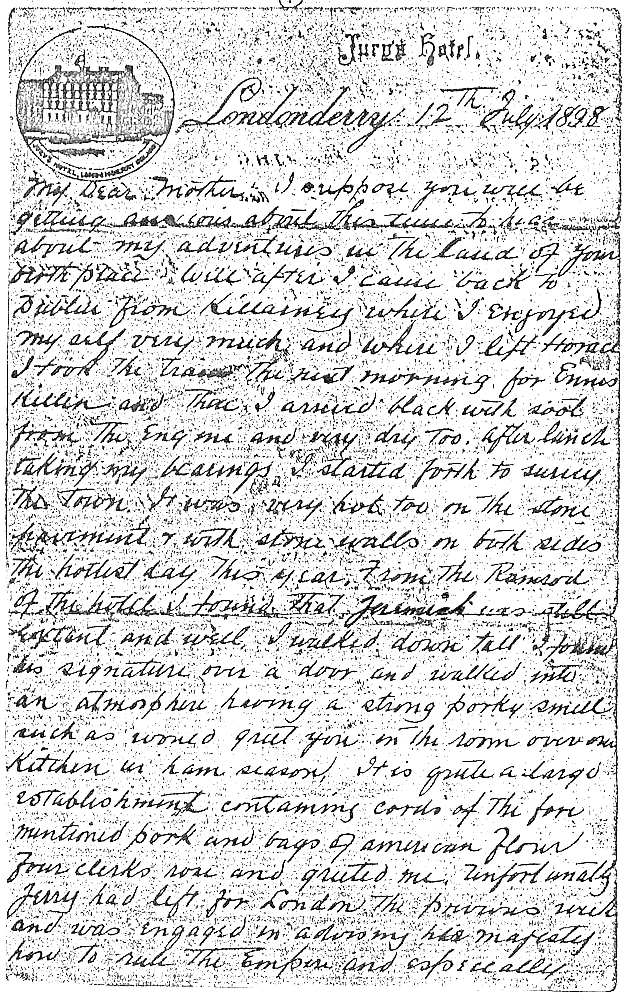 Jury's Hotel.
Londonderry 12th July 1898
My Dear Mother, I suppose you will be
getting anxious about this time to hear
about my adventures in the land of your
birth place. Well after I came back to
Dublin from Killarney where I enjoyed
my self very much and where I left Horace
I took the train the next morning for Ennis
Killen and there I arrived black with soot
from the Engine and very dry too. After lunch
taking my bearings I started forth to survey
the Town. It was very hot too on the stone
pavement & with stone walls on both sides
the hottest day this year. From the Ramrod
of the hotel I found that Jeremiah was still
extant and well. I walked down till I found
his signature over a door and walked into
an atmosphere having a strong porky smell
such as would greet you in the room over our
Kitchen in ham season. It is quite a large
establishment containing cords of the fore
mentioned pork and bags of american Flour
Four clerks rose and greeted me. Unfortunally
Jerry had left for London the previous week
and was engaged in advising her majesty
how to rule the Empire and especially